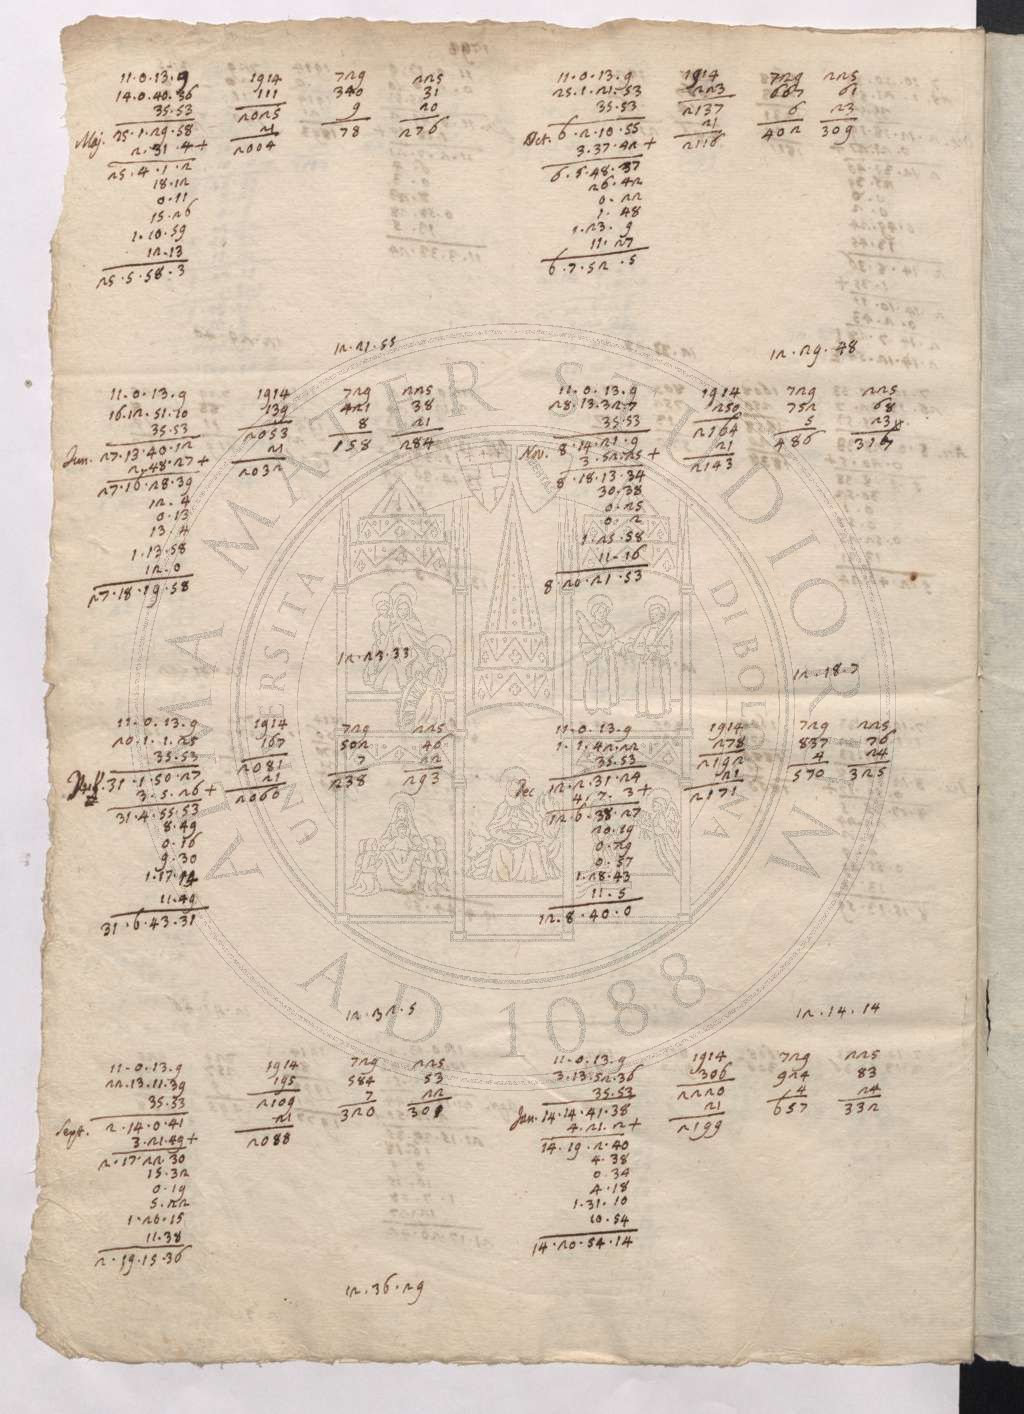 11.0.13.9 1914 729 225
14.0.40.36 111 340 31
35.53 2025 9 20
Maj. 25.1.29.58 21 78 276
2.31.4+ 2004
25.4.1.2
18.12
0.11
15.26
1.10.59
12.13
25.5.58.3
12.21.55
11.0.13.9 1914 729 225
16.12.51.10 139 421 38
35.53 2053 8 21
Jun. 27.13.40.12 21 158 284
2.48.27+ 2032
27.16.28.39
12.4
0.13
13.4
1.13.58
12.0
27.18.19.58
12.23.33
11.0.13.9 1914 729 225
20.1.1.25 167 502 46
35.53 2081 7 22
31.1.50.27 21 238 293
3.5.26+ 2060
31.4.55.53
8.49
0.16
9.30
1.17.14
11.49
31.6.43.31
12.32.5
11.0.13.9 1914 729 225
22.13.11.39 195 584 53
35.53 2109 7 22
Sept. 2.14.0.41 21 320 301
3.21.49+ 2088
2.17.22.30
15.32
0.19
5.22
1.20.15
11.38
2.19.15.36
12.36.29
11.0.13.9 1914 729 225
25.1.21.53 223 667 61
35.53 2137 6 23
Oct. 6.2.10.55 21 402 309
3.37.42+ 2116
6.5.48.37
26.42
0.22
1.48
1.23.9
11.27
6.7.52.5
12.29.48
11.0.13.9 1914 729 225
28.13.32.7 250 752 68
35.53 2164 5 23
Nov. 8.14.21.9 21 486 316
3.52.25+ 2143
8.18.13.34
30.38
0.25
0.2
1.25.58
11.16
8.20.21.53
12.18.7
11.0.13.9 1914 729 225
1.1.42.22 278 837 76
35.53 2192 4 24
Dec 12.2.31.24 21 570 325
4.7.3+ 2171
12.6.38.27
20.19
0.29
0.57
1.28.43
11.5
12.8.40.0
12.14.14
11.0.13.9 1914 729 225
3.13.52.36 306 924 83
35.53 2220 4 24
Jan. 14.14.41.38 21 657 332
4.21.2+ 2199
14.19.2.40
4.38
0.34
4.18
1.31.10
10.54
14.20.54.14
ALMA MATER STUDIORUM
UNIVERSITÀ DI BOLOGNA
A.D. 1088